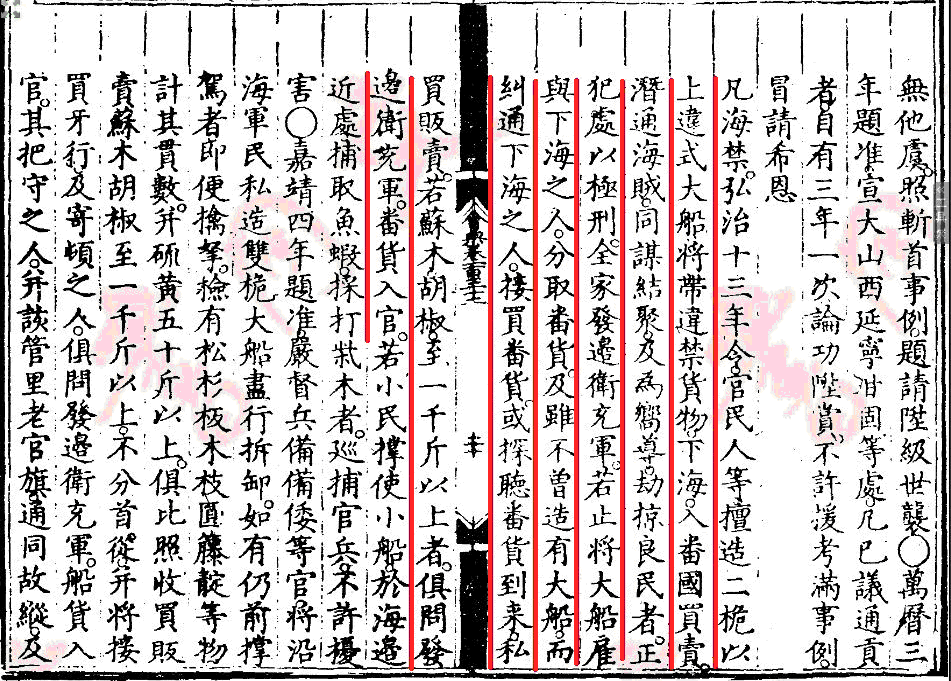 無他虞照斬首事例題請陞級世襲○萬曆三
年題准宣大山西延寧甘固等處凡已議通貢
者自有三年一次論功陞賞不許援考滿事例
冒請希恩
凡海禁弘治十三年令官民人等擅造二桅以
上違式大船將帶違禁貨物下海入番國買賣
潛通海賊同謀結聚及為嚮導劫掠良民者正
犯處以極刑全家發邊衛充軍若止將大船雇
與下海之人分取番貨及雖不曾造有大船而
糾通下海之人接買番貨或探聽番貨到来私
買販賣若蘇木胡椒至一千斤以上者俱問發
邊衛充軍番貨入官若小民撐使小船於海邊
近處捕取魚蝦採打柴木者巡捕官兵不許擾
害○嘉靖四年題准嚴督兵備備倭等官將沿
海軍民私造雙桅大船盡行拆卸如有仍前撐
駕者即便擒拏檢有松杉板木枝圓籐靛等物
計其貫數并硫黃五十斤以上俱比照收買販
賣蘇木胡椒至一千斤以上不分首從并將接
買牙行及寄頓之人俱問發邊衛充軍船貨入
官其把守之人并該管里老官旗通同故縱及